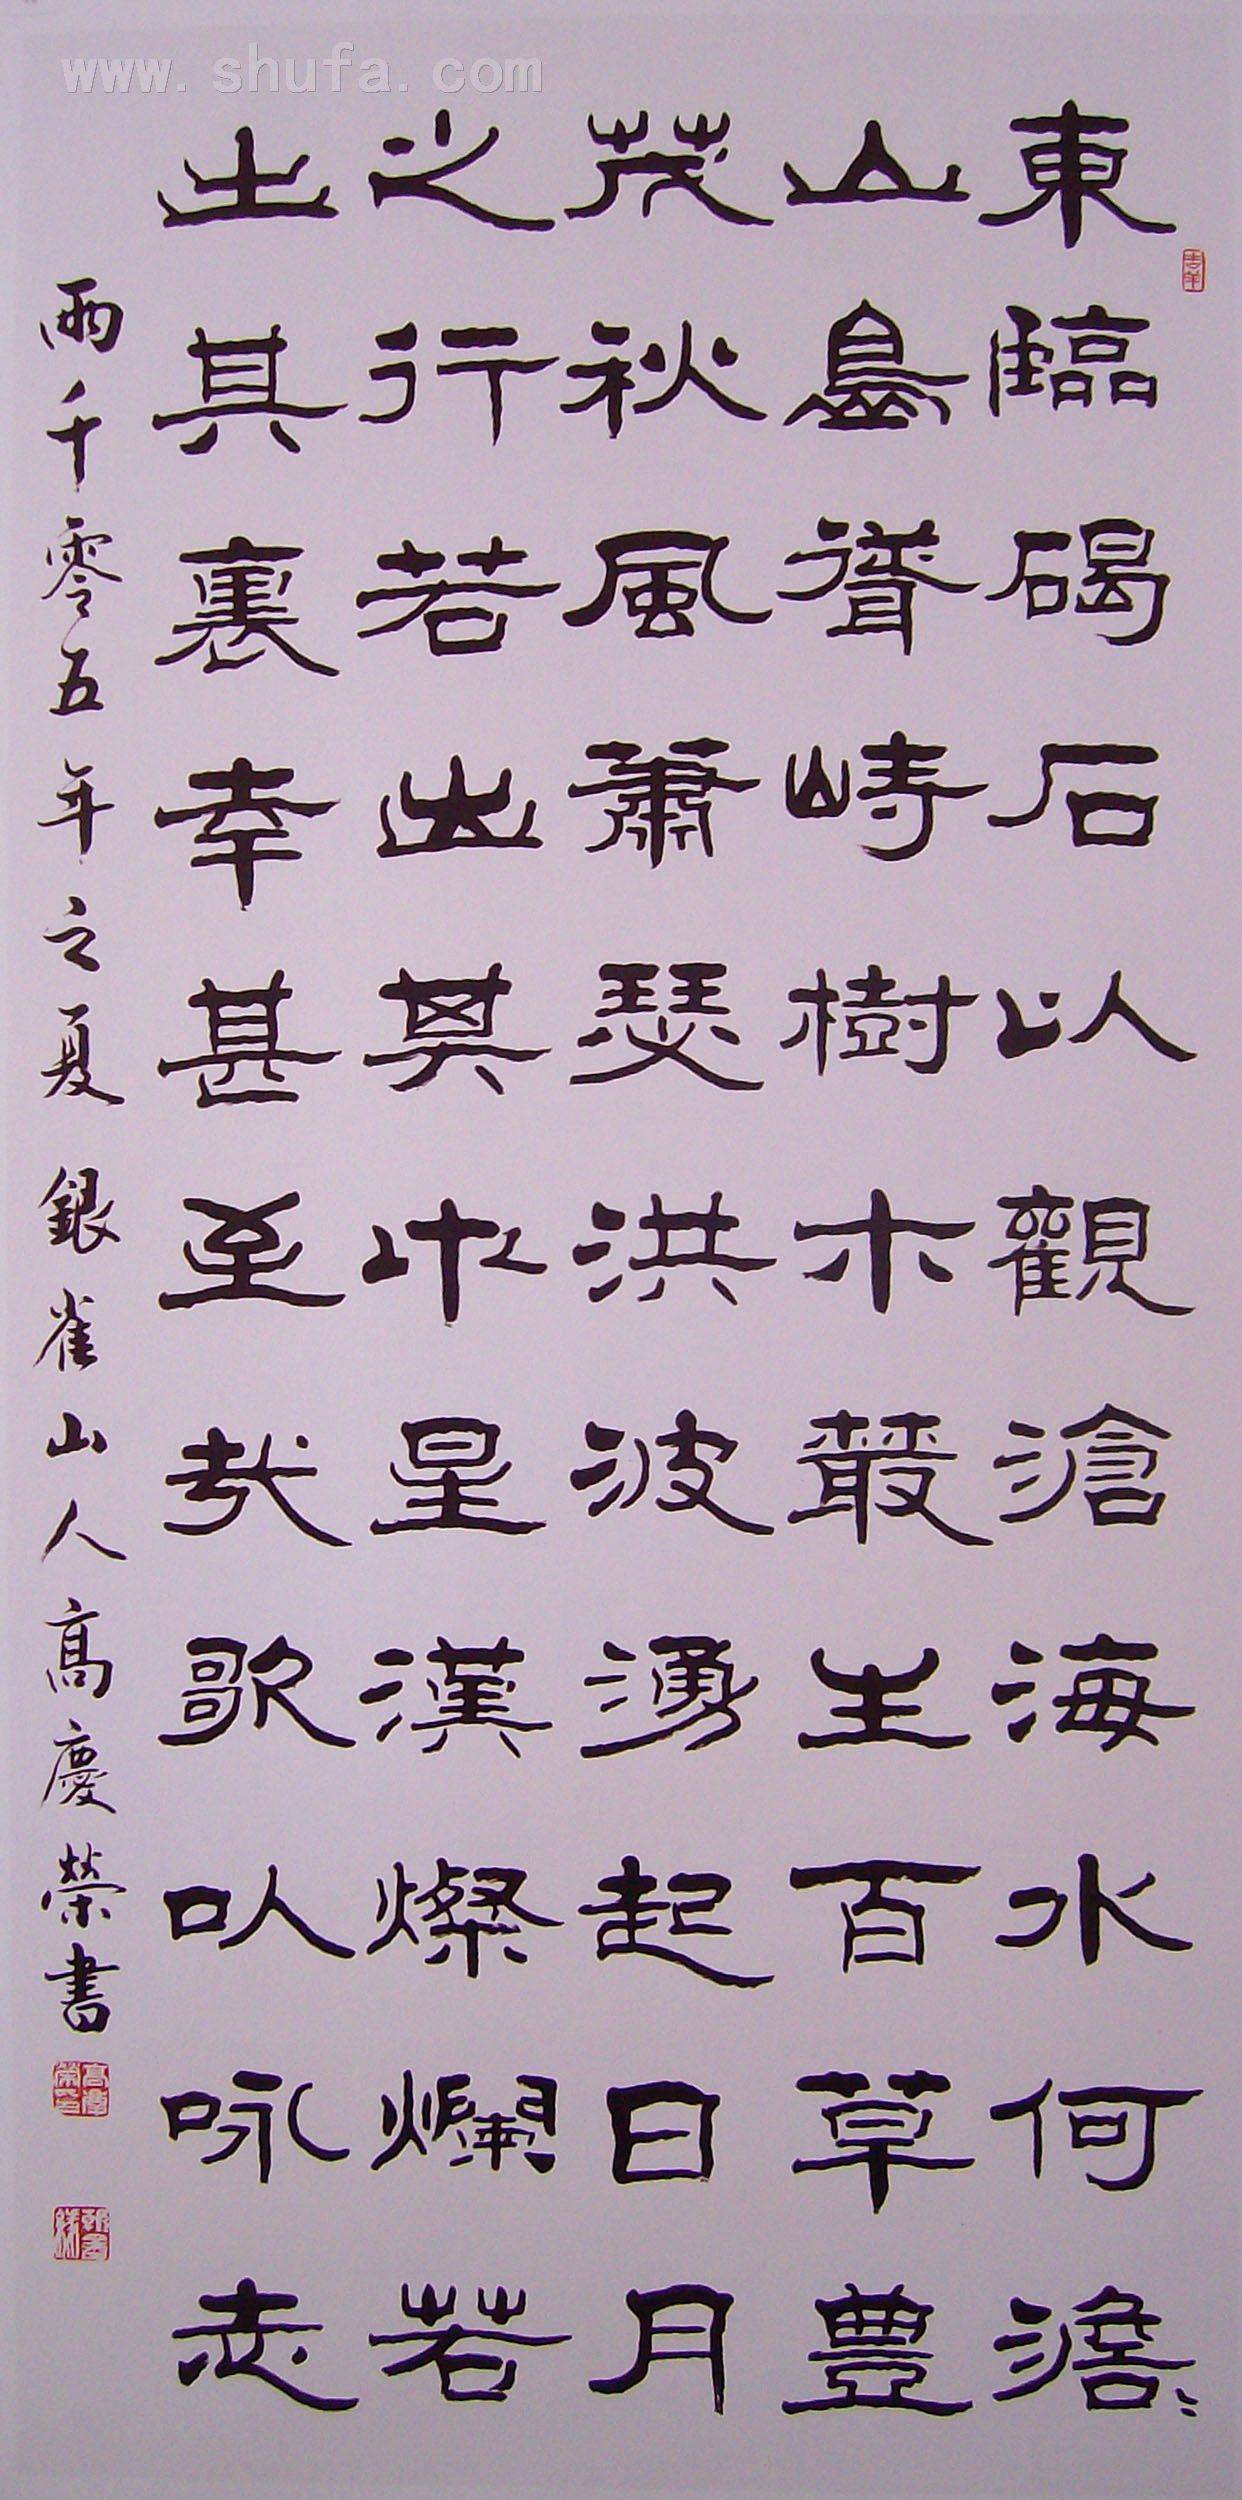 www.shufa.com
東臨碣石以觀滄海水何澹〻
山島聳峙樹木叢生百草豊
茂秋風蕭瑟洪波湧起日月
之行若出其中星漢燦爛若
出其裏幸甚至哉歌以咏志
兩千零五年之夏 銀雀山人高慶榮書